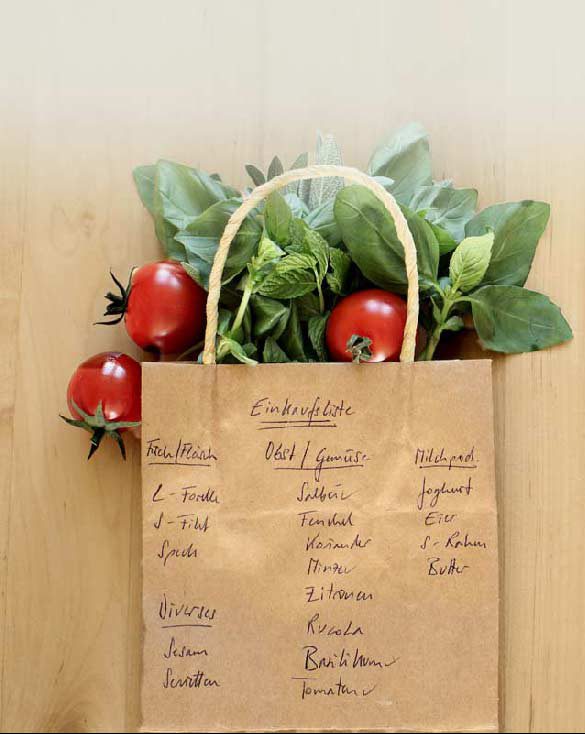 Einkaufsliste
Fisch/Fleisch
L-Forelle
S-Filet
Speck
Diverses
Sesam
Servietten
Obst/Gemüse
Salbei
Fenchel
Koriander
Minze
Zitronen
Rucola
Basilikum
Tomaten
Milchprod.
Joghurt
Eier
S-Rahm
Butter